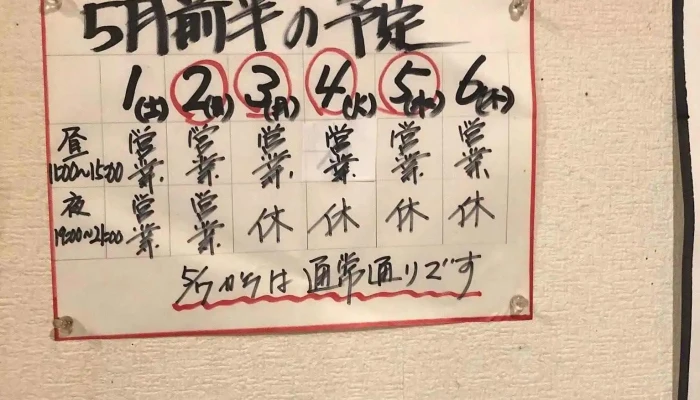 5月前半の予定
1(土) 2(日) 3(月) 4(火) 5(水) 6(木)
昼 営業 営業 営業 営業 営業 営業
11:00~15:00
夜 営業 営業 休 休 休 休
19:00~21:00
5/7からは通常通りです